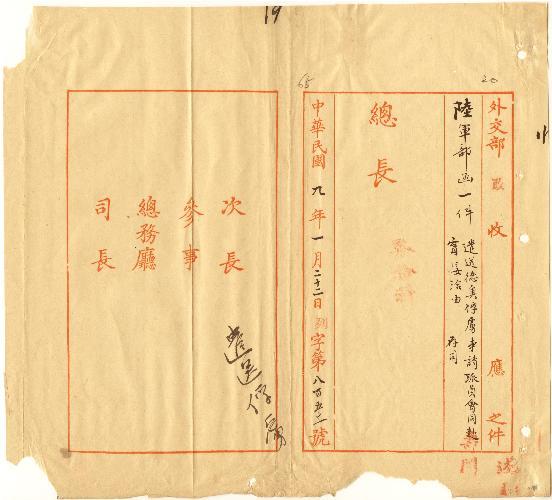 19
65
20
外交部 收 應 之件
陸軍部函一件 遣送德奧俘虜事請派員會同
妥洽由 存司
總長
中華民國九年一月二十二日到字第八百五二號
次長
參事
總務廳
司長
遣送俘虜